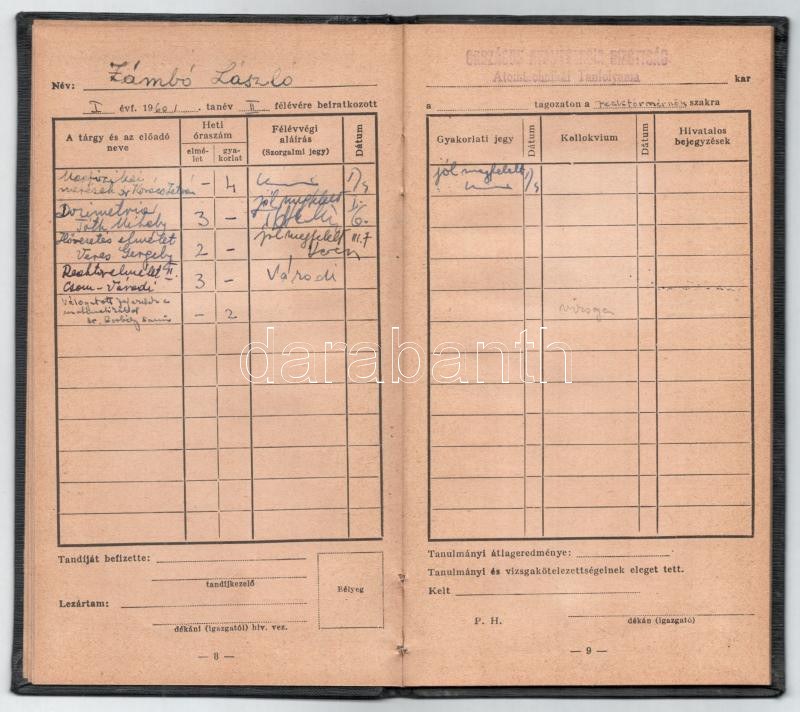 Név: Zámbó László
I évf. 1960/1. tanév II félévére beiratkozott
A tárgy és az előadó neve
Heti óraszám
elmélet
gyakorlat
Félévvégi aláírás
(Szorgalmi jegy)
Dátum
Magfizikai
mérések dr Kovács István
– 4
Dozimetria
Tóth Mihály
3 –
jól megfelelt
6.
elmélet
Veres Gergely
2 –
jól megfelelt
III.7
Veres
Reaktorelmélet II.
Csom-Váradi
3 –
Váradi
Válogatott fejezetek a
– 2
darabanth
Tandíját befizette:
tandíjkezelő
Lezártam:
dékáni (igazgatói) hiv. vez.
Bélyeg
— 8 —
ORSZÁGOS ATOMENERGIA BIZOTTSÁG
Atomtechnikai Tanfolyama
kar
a tagozaton a reaktormérnök szakra
Gyakorlati jegy
Dátum
Kollokvium
Dátum
Hivatalos bejegyzések
jól megfelelt
vizsga
Tanulmányi átlageredménye:
Tanulmányi és vizsgakötelezettségeinek eleget tett.
Kelt
P. H.
dékán (igazgató)
— 9 —